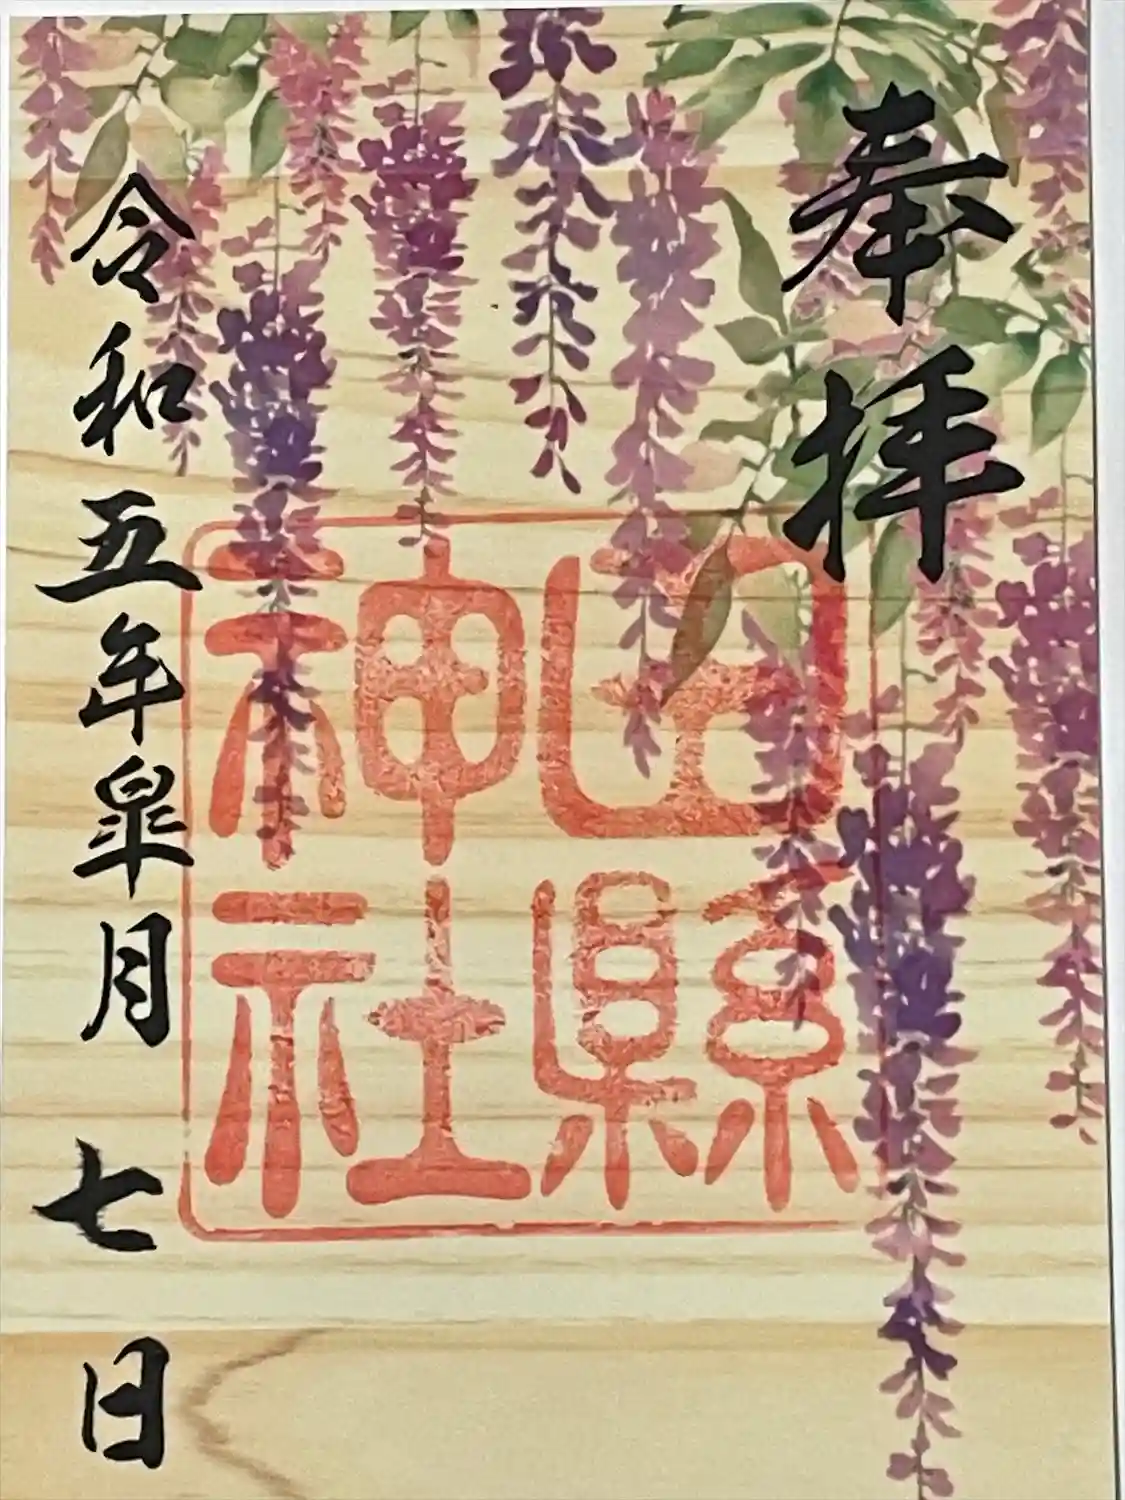 奉拝
田縣
神社
令和五年皐月 七日